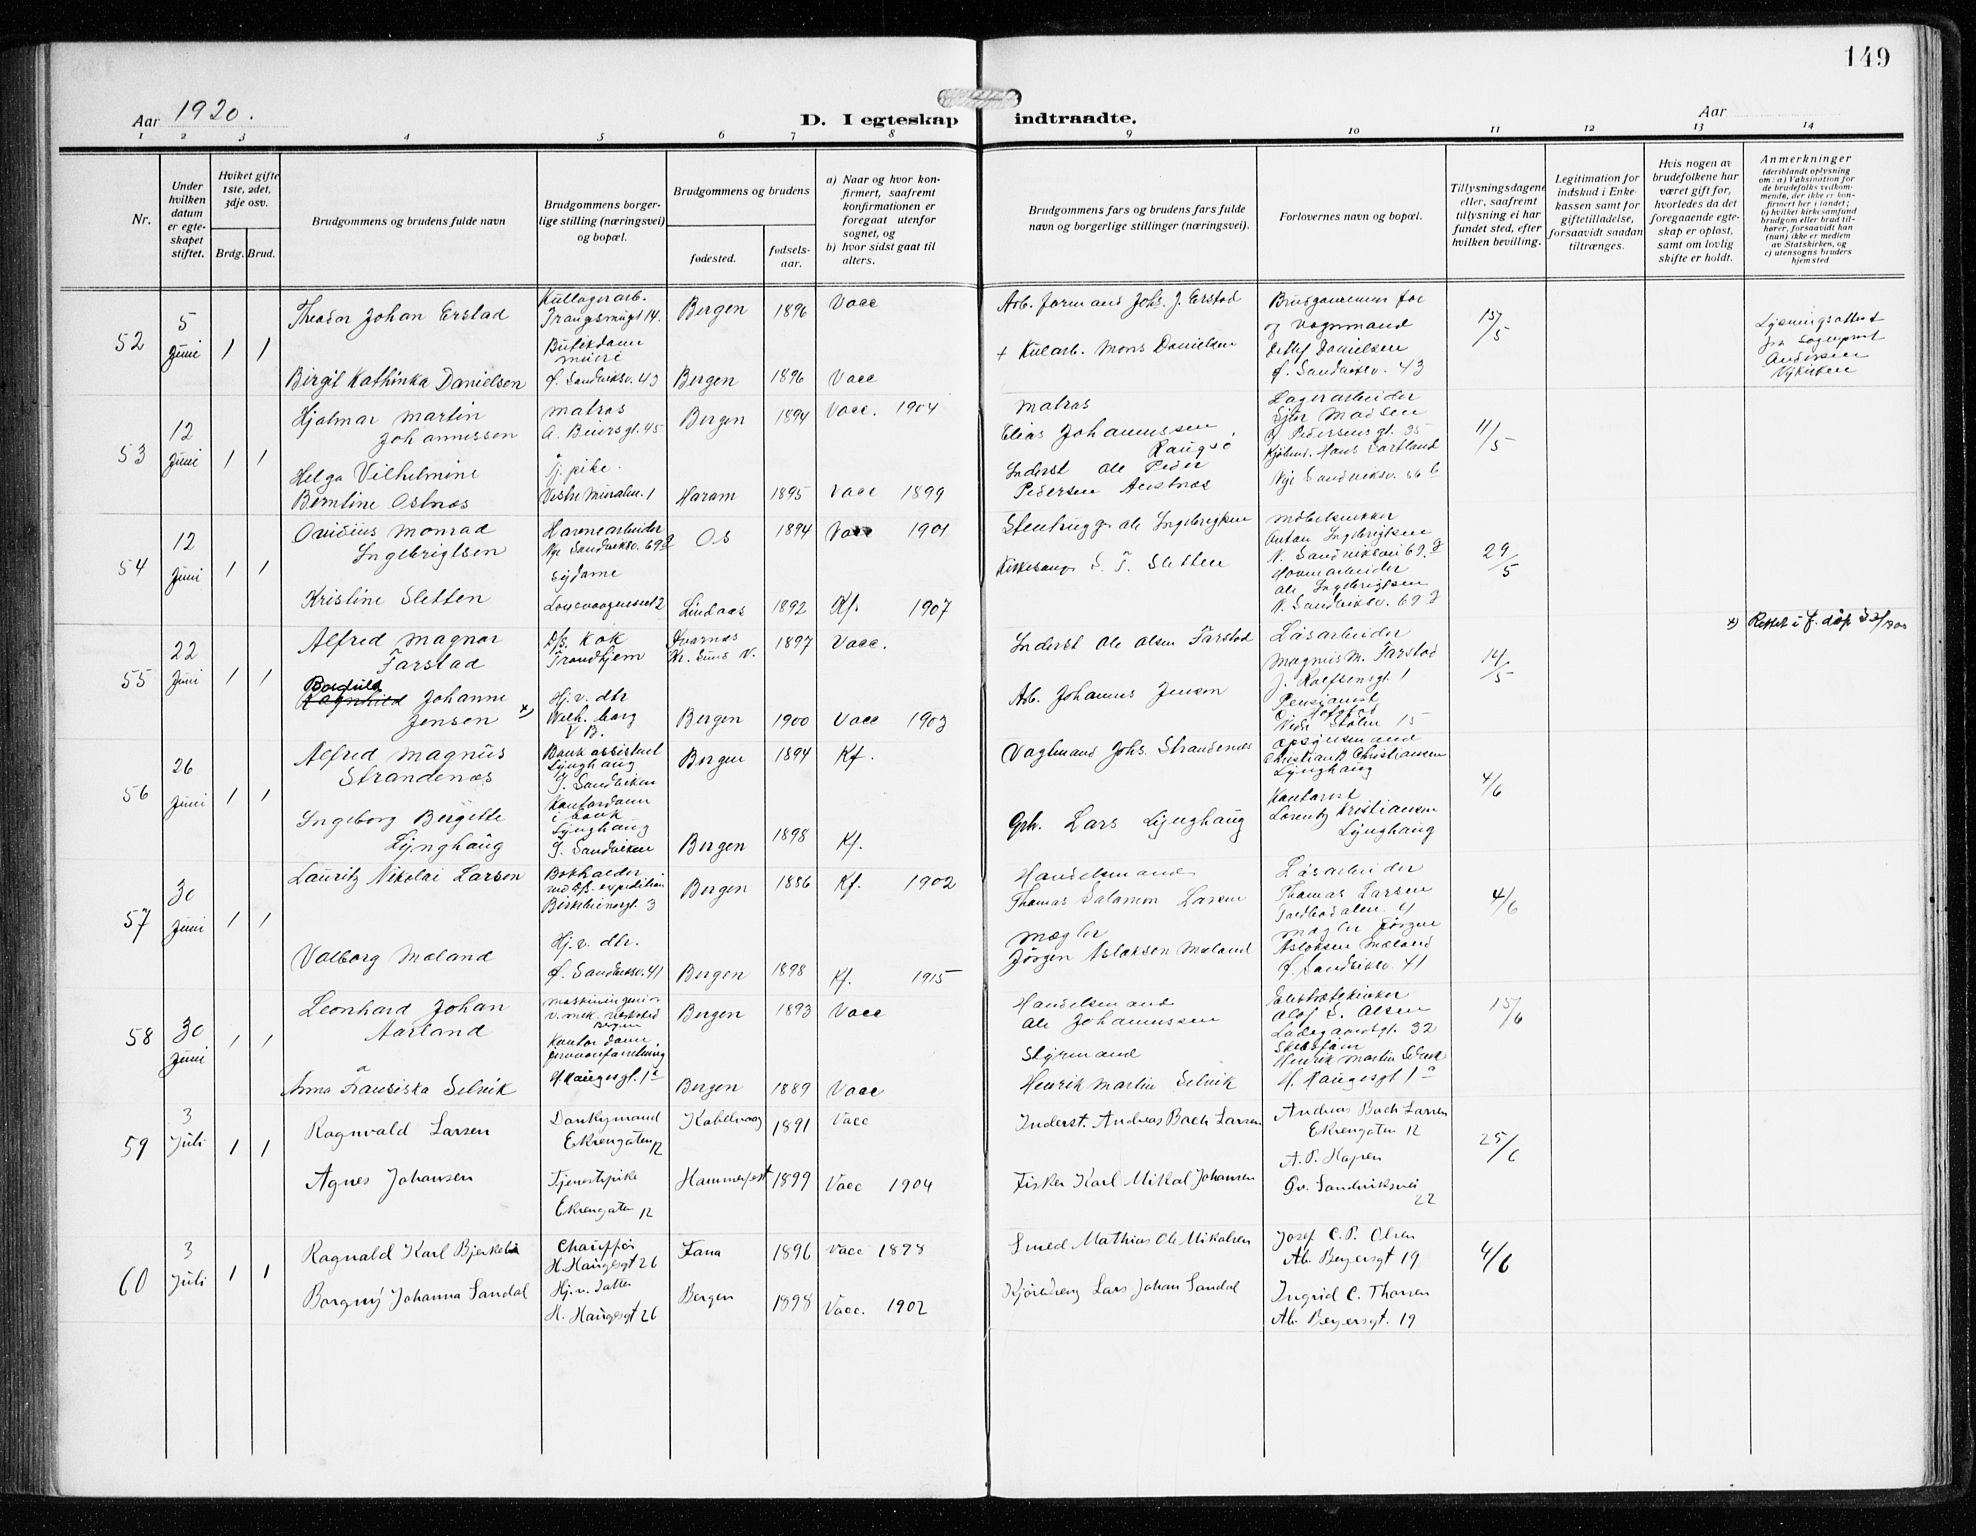 149
Aar 1920.
D. I egteskap indtraadte.
Aar
1 2 3 4 5 6 7 8 9 10 11 12 13 14
Nr.
Under hvilken datum er egteskapet stiftet.
Hviket gifte 1ste, 2det, 3dje osv.
Brdg. Brud.
Brudgommens og brudens fulde navn
Brudgommens borgerlige stilling (næringsvei) og bopæl.
Brudgommens og brudens
fødested.
fødselsaar.
a) Naar og hvor konfirmert, saafremt konfirmationen er foregaat utenfor sognet, og
b) hvor sidst gaat til alters.
Brudgommens fars og brudens fars fulde navn og borgerlige stillinger (næringsvei).
Forlovernes navn og bopæl.
Tillysningsdagene eller, saafremt tillysning ei har fundet sted, efter hvilken bevilling.
Legitimation for indskud i Enkekassen samt for giftetilladelse, forsaavidt saadan tiltrænges.
Hvis nogen av brudefolkene har været gift før, hvorledes da det foregaaende egteskap er opløst, samt om lovlig skifte er holdt.
Anmerkninger (deriblandt oplysning om: a) Vaksination for de brudefolks vedkommende, der ikke er konfirmert her i landet; b) hvilket kirkesamfund brudgom eller brud tilhører, forsaavidt han (hun) ikke er medlem av Statskirken, og c) utensogns bruders hjemsted
52 5 Juni 1 1
Theodor Johan Erstad
Kullagerarb.
Trangesmugt 14.
Bergen 1896 Vacc
Arb. formand Johs. J. Erstad
Brudgommens far
og Vognmand
Detlef Danielsen
Ø. Sandviksv. 43
15/5
Lysningsattest
fra Sogneprest
Andersen
Birgit Kathinka Danielsen
Butikdame
Ø. Sandviksv. 43
Bergen 1896 Vacc
+ Kularb. Mons Danielsen
53 12 Juni 1 1
Hjalmar Martin
Johannessen
Matros
A. Beiersgt. 45
Bergen 1894 Vacc. 1904
Matros
Elias Johannessen
Lagerarbeider
Madsen
Pedersensgt. 35
11/5
Helga Vilhelmine
Berntine Ostnæs
Tj. pike.
Vestre Muralm. 1
Haram 1895 Vacc 1899
Inderst Ole Peder
Pedersen Austnæs
Nye Sandviksv. 56 b
54 12 Juni 1 1
Ovidius Monrad
Ingebrigtsen
Havnearbeider
Nye Sandviksv. 69 g
Os 1894 Vacc 1901
Stenhugg. Ole Ingebrigtsen
Møbelsnekker
Anton Ingebrigtsen
N. Sandviksvei 69 g
29/5
Kristine Sletten
Sydame
Lindaas 1892 Kf. 1907
Kirkesang. S. T. Sletten
Havnearbeider
Ole Ingebrigtsen
N. Sandviksv. 69 g
55 22 Juni 1 1
Alfred Magnar
Farstad
D/s. Kok
Trondhjem
Kr. Sund N. 1897 Vacc.
Inderst Ole Olsen Farstad
Løsarbeider
Magnus M. Farstad
J. Rolfsensgt. 1
14/5
x) Rettet i f. døp
Bordhild
Ragnhild Johanne
Jensen x)
Hj. v. dtr
Bergen 1900 Vacc 1903
Arb. Johannes Jensen
Pensjonist
Stølen 15
56 26 Juni 1 1
Alfred Magnus
Strandenæs
Bankassistent
Lynghaug
Y. Sandviken
Bergen 1894 Kf.
Vagtmand Johs. Strandenæs
Opsynsmand
Christian B. Christiansen
Lynghaug
4/6
Ingeborg Bergitte
Lynghaug
Kontordame
i bank
Lynghaug
Y. Sandviken
Bergen 1898 Kf.
Grh. Lars Lynghaug
Kontorist
Lorentz Kristiansen
Lynghaug
57 30 Juni 1 1
Lauritz Nikolai Larsen
Bokholder
ved D/s. expedition
Birkebeinersgt. 3
Bergen 1886 Kf. 1902
Handelsmand
Thomas Salamon Larsen
Løsarbeider
Thomas Larsen
4/6
Valborg Mæland
Hj. v. dtr.
Ø. Sandviksv. 41
Bergen 1898 Kf. 1915
Mægler
Jörgen Aslaksen Mæland
Mægler Jörgen
Aslaksen Mæland
Ø. Sandviksv. 41
58 30 Juni 1 1
Leonhard Johan
Aarland
Maskiningeniør
v. mek. verksted
Bergen
Bergen 1893 Vacc
Handelsmand
Ole Johannessen
Elektrotekniker
Olaf S. Olsen
Ladegaardsgt. 32
15/6
Anna Fransiska Selvik
Kontordame,
H. Haugesgt. 1a
Bergen 1889 Vacc
Styrmand
Henrik Martin Selvik
Henrik Martin Selvik
H. Haugesgt 1a
59 3 Juli 1 1
Ragnvald Larsen
Donkeymand
Ekrengaten 12
Kabelvaag 1891 Vacc
Inderst. Andreas Bach Larsen
Andreas Bach Larsen
Ekrengaten 12
25/6
Agnes Johansen
Tjenestepike
Ekrengaten 12
Hammerfest 1899 Vacc 1904
Fisker Karl Mikal Johansen
A. P. Hagen
Øv. Sandviksvei
22
60 3 Juli 1 1
Ragnald Karl Bjerkelie
Chauffør
H. Haugesgt 26
Fana 1896 Vacc 1898
Smed Mathias Ole Mikalsen
Josef C. P. Olsen
Ab. Beyersgt 19
4/6
Borgny Johanna Sandal
Hj. v. Datter
H. Haugesgt 26
Bergen 1898 Vacc. 1902
Kjøredreng Lars Johan Sandal
Ingrid C. Thorsen
Ab. Beyersgt. 19